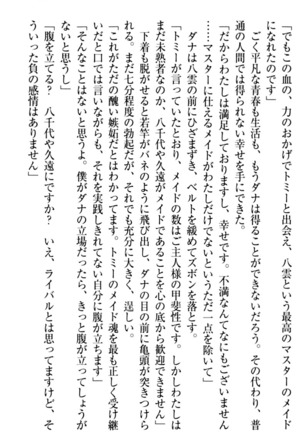 「でもこの血の、力のおかげでトミーと出会え、八雲という最高のマスターのメイド
になれたのです」
　ごく平凡な青春も生活も、もうダナは得ることができないだろう。その代わり、普
通の人間では得られない幸せを手にできた。
「だからわたしは満足しておりますし、幸せです。不満なんてなにもございません
……マスターに仕えるメイドがわたしだけでないというただ一点を除いて」
　ダナは八雲の前にひざまずき、ベルトを緩めてズボンを落とす。
「トミーが言っていたとおり、メイドの数はご主人様の甲斐性です。しかしわたしは
まだ未熟者なのか、八千代や久遠がメイドであることを心の底から歓迎できません」
　下着も脱がせると若竿がバネのように飛び出し、ダナの目の前に亀頭が突きつけら
れる。まだ七分程度の勃起だが、それでも充分に大きく、逞しい。
「これがただの醜い嫉妬だとはわかってます。トミーのメイド魂を最も正しく受け継
いだと口では言いながらも、それを実践しきれてない自分に腹が立ちます」
「そんなことはないと思うよ。僕がダナの立場だったら、きっと腹が立ってしょうが
ないと思うし」
「腹を立てる？　八千代や久遠にですか？　いえ、ライバルとは思ってますけど、そ
ういった負の感情はありません」